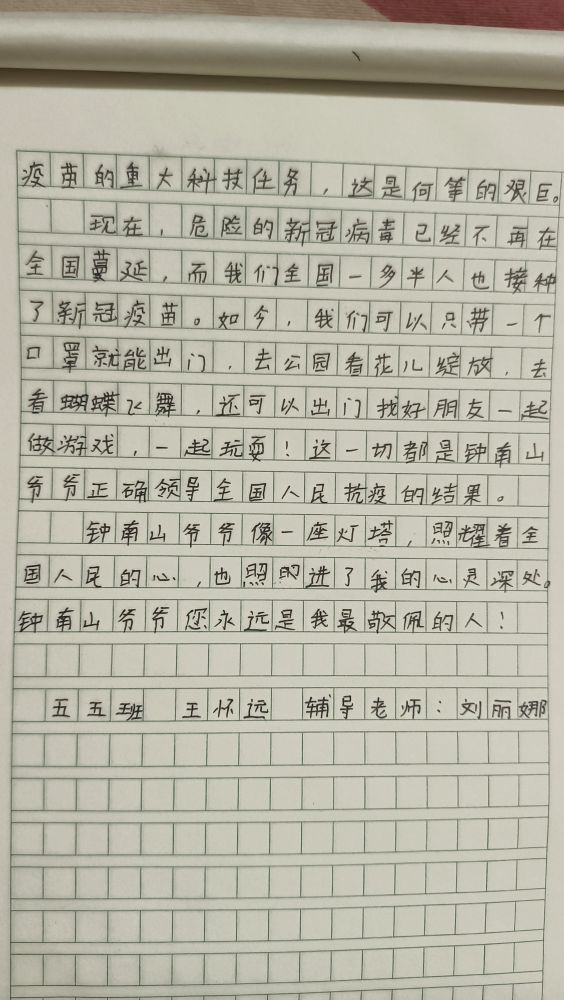 疫苗的重大科技任务，这是何等的艰巨。
现在，危险的新冠病毒已经不再在
全国蔓延，而我们全国一多半人也接种
了新冠疫苗。如今，我们可以只带一个
口罩就能出门，去公园看花儿绽放，去
看蝴蝶飞舞，还可以出门找好朋友一起
做游戏，一起玩耍！这一切都是钟南山
爷爷正确领导全国人民抗疫的结果。
钟南山爷爷像一座灯塔，照耀着全
国人民的心，也照进了我的心灵深处。
钟南山爷爷您永远是我最敬佩的人！
五五班 王怀远 辅导老师：刘丽娜